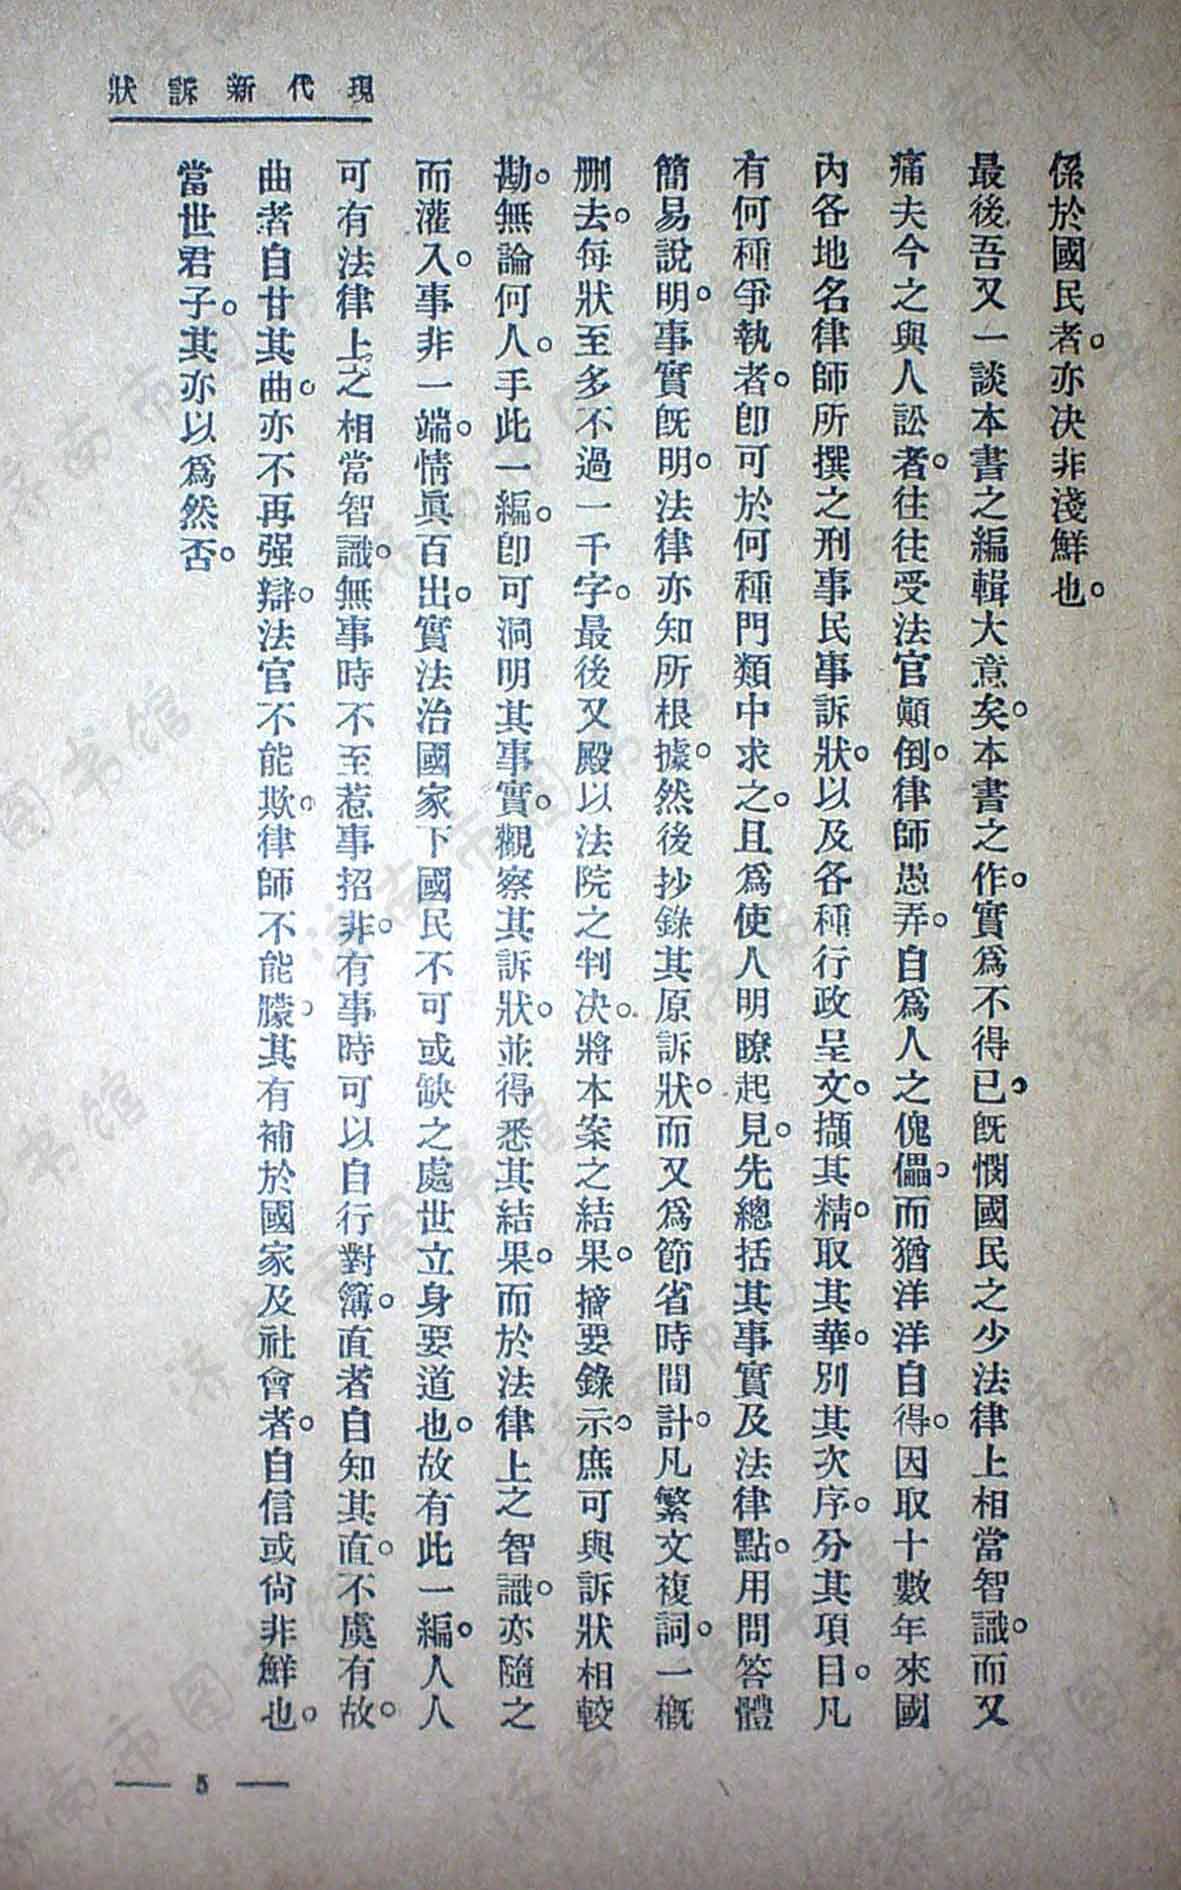 現代新訴狀
係於國民者。亦決非淺鮮也。
最後吾又一談本書之編輯大意矣。本書之作。實爲不得已。旣憫國民之少法律上相當智識。而又
痛夫今之與人訟者。往往受法官顚倒。律師愚弄。自爲人之傀儡。而猶洋洋自得。因取十數年來國
內各地名律師所撰之刑事民事訴狀。以及各種行政呈文。擷其精。取其華。別其次序。分其項目。凡
有何種爭執者。卽可於何種門類中求之。且爲使人明瞭起見。先總括其事實及法律點。用問答體
簡易說明。事實旣明。法律亦知所根據。然後抄錄其原訴狀。而又爲節省時間計。凡繁文複詞。一槪
删去。每狀至多不過一千字。最後又殿以法院之判决。將本案之結果。摘要錄示。庶可與訴狀相較
勘。無論何人。手此一編。卽可洞明其事實。觀察其訴狀。並得悉其結果。而於法律上之智識。亦隨之
而灌入。事非一端。情眞百出。實法治國家下國民不可或缺之處世立身要道也。故有此一編。人人
可有法律上之相當智識。無事時不至惹事招非。有事時可以自行對簿。直者自知其直。不虞有故。
曲者自甘其曲。亦不再强辯。法官不能欺。律師不能朦。其有補於國家及社會者。自信或尙非鮮也。
當世君子。其亦以爲然否。
— 5 —
濟南市图书馆